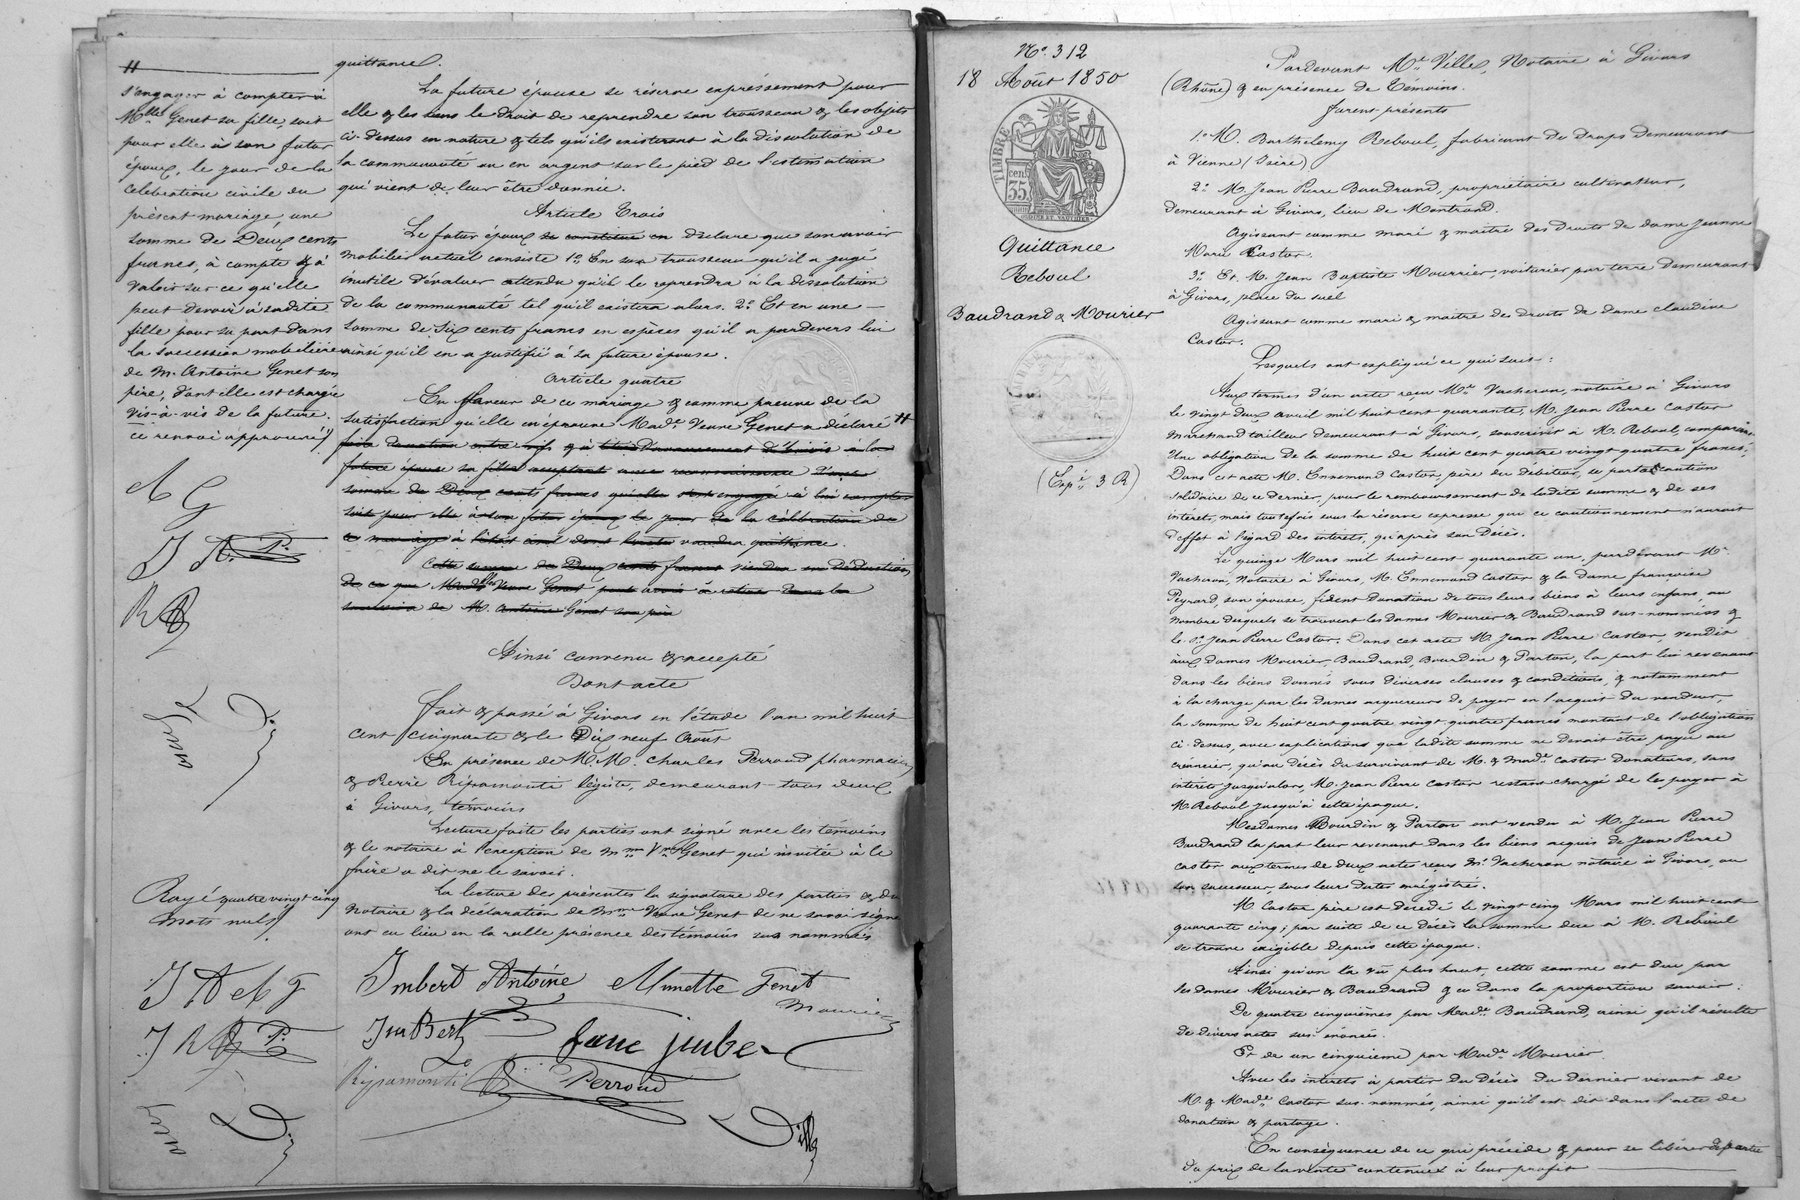 "
s'engager à compter à
Mlle Genet sa fille, soit
pour elle à son futur
époux, le jour de la
celebration civile du
présent mariage une
somme de Deux cents
francs, à compte & à
valoir sur ce qu'elle
peut devoir à sadite
fille pour sa part dans
la succession mobilière
de M. Antoine Genet son
père, dont elle est chargée
vis-à-vis de la future.
ce renvoi approuvé
quittance.
La future épouse se réserve expressément pour
elle & les siens le droit de reprendre son trousseau & les objets
ci-dessus en nature & tels qu'ils existeront à la dissolution de
la communauté ou en argent sur le pied de l'estimation
qui vient de leur être donnée.
Article Trois
Le futur époux se constitue en déclare que son avoir
mobilier actuel consiste 1o En son trousseau qu'il a jugé
inutile d'évaluer attendu qu'il le reprendra à la dissolution
de la communauté tel qu'il existera alors. 2o Et en une
somme de Six cents francs en espèces qu'il a pardevers lui
ainsi qu'il en a justifié à sa future épouse.
Article quatre
En faveur de ce mariage & comme preuve de la
satisfaction qu'elle en éprouve Made Veuve Genet a déclaré "
faire donation entre vifs & à titre d'avancement d'hoirie à la
future épouse sa fille acceptant avec reconnaissance d'une
somme de Deux cents francs qu'elle s'engage à lui compter
soit pour elle à son futur époux le jour de la célébration de
ce mariage à l'état civil dont l'acte vaudra quittance.
Cette somme de Deux cents francs viendra en déduction
de ce que Madlle Veuve Genet peut avoir à retirer dans la
succession de M. Antoine Genet son père
Ainsi convenu & accepté
Dont acte
Fait & passé à Givors en l'étude l'an mil huit
cent cinquante & le Dix neuf Août
En présence de M.M. Charles Perroud pharmacien
& Pierre Ripamonti légiste, demeurans tous deux
à Givors, témoins
Lecture faite les parties ont signé avec les témoins
& le notaire à l'exception de Mme Ve Genet qui invitée à le
faire a dit ne le savoir.
La lecture des présentes la signature des parties & du
Notaire & la déclaration de Mme Veuve Genet de ne savoir signer
ont eu lieu en la réelle présence des témoins sus nommés
Rayé quatre vingt cinq
mots nuls
Imbert Antoine Mimette Genet
Mourier
Imbert
Jane jmber
Ripamonti Perroud
No. 312
18 Août 1850
TIMBRE
35 cent
Quittance
Reboul
Baudrand & Mourier
(Expé 3 R)
Pardevant Me Ville, Notaire à Givors
(Rhône) & en présence de Témoins.
furent présents
1o M. Barthélemy Reboul, fabricant de draps demeurant
à Vienne (Isère)
2o M. Jean Pierre Baudrand, propriétaire cultivateur,
demeurant à Givors, lieu de Montrond.
Agissant comme mari & maître des Droits de dame Jeanne
Marie Castor.
3o Et M. Jean Baptiste Mourrier, voiturier par terre demeurant
à Givors, place du suel
Agissant comme mari & maître des droits de dame claudine
Castor.
Lesquels ont expliqué ce qui suit:
Aux termes d'un acte reçu Me Vacheron, notaire à Givors
le vingt deux avril mil huit cent quarante, M. Jean Pierre Castor
marchand tailleur demeurant à Givors, souscrivit à M. Reboul, comparant
Une obligation de la somme de huit cent quatre vingt quatre francs.
Dans cet acte M. Ennemond Castor, père du débiteur, se porta caution
solidaire de ce dernier, pour le remboursement de ladite somme & de ses
intérêts, mais toutefois sous la réserve expresse que ce cautionnement n'aurait
d'effet à l'égard des intérêts, qu'après son décès.
Le quinze Mars mil huit cent quarante un, pardevant Me
Vacheron, Notaire à Givors, M. Ennemond Castor & la dame françoise
Peyrard, son épouse, firent Donation de tous leurs biens à leurs enfans, au
Nombre desquels se trouvent les dames Mourier & Baudrand sus-nommées &
le sr Jean Pierre Castor. Dans cet acte M. Jean Pierre Castor, vendit
aux dames Mourier, Baudrand, Bourdin & Parton, la part lui revenant
dans les biens donnés sous diverses clauses & conditions, & notamment
à la charge par les dames acquereurs de payer en l'acquit du vendeur,
la somme de huit cent quatre vingt quatre francs montant de l'obligation
ci-dessus, avec explications que ladite somme ne devait être payée au
créancier, qu'au décès du survivant de M. & Made Castor Donateurs, sans
intérêts jusqu'alors, M. Jean Pierre Castor restant chargé de les payer à
M. Reboul jusqu'à cette époque.
Mesdames Bourdin & Parton ont vendu à M. Jean Pierre
Baudrand la part leur revenant dans les biens acquis de Jean Pierre
Castor aux termes de deux actes reçus Me Vacheron notaire à Givors, ou
son successeur, sous leurs dates enregistrés.
M. Castor père est décédé le vingt cinq Mars mil huit cent
quarante cinq; par suite de ce décès la somme due à M. Reboul
se trouve exigible depuis cette époque.
Ainsi qu'on l'a vu plus haut, cette somme est due par
les dames Mourier & Baudrand & ce dans la proportion savoir:
De quatre cinquièmes par Made Baudrand, ainsi qu'il résulte
de divers actes sus énoncés.
Et de un cinquième par Made Mourier.
Avec les intérêts à partir du Décès du dernier vivant de
M. & Made Castor sus-nommés, ainsi qu'il est dit dans l'acte de
donation & partage.
En conséquence de ce qui précède & pour se libérer de partie
du prix de la vente contenue à leur profit